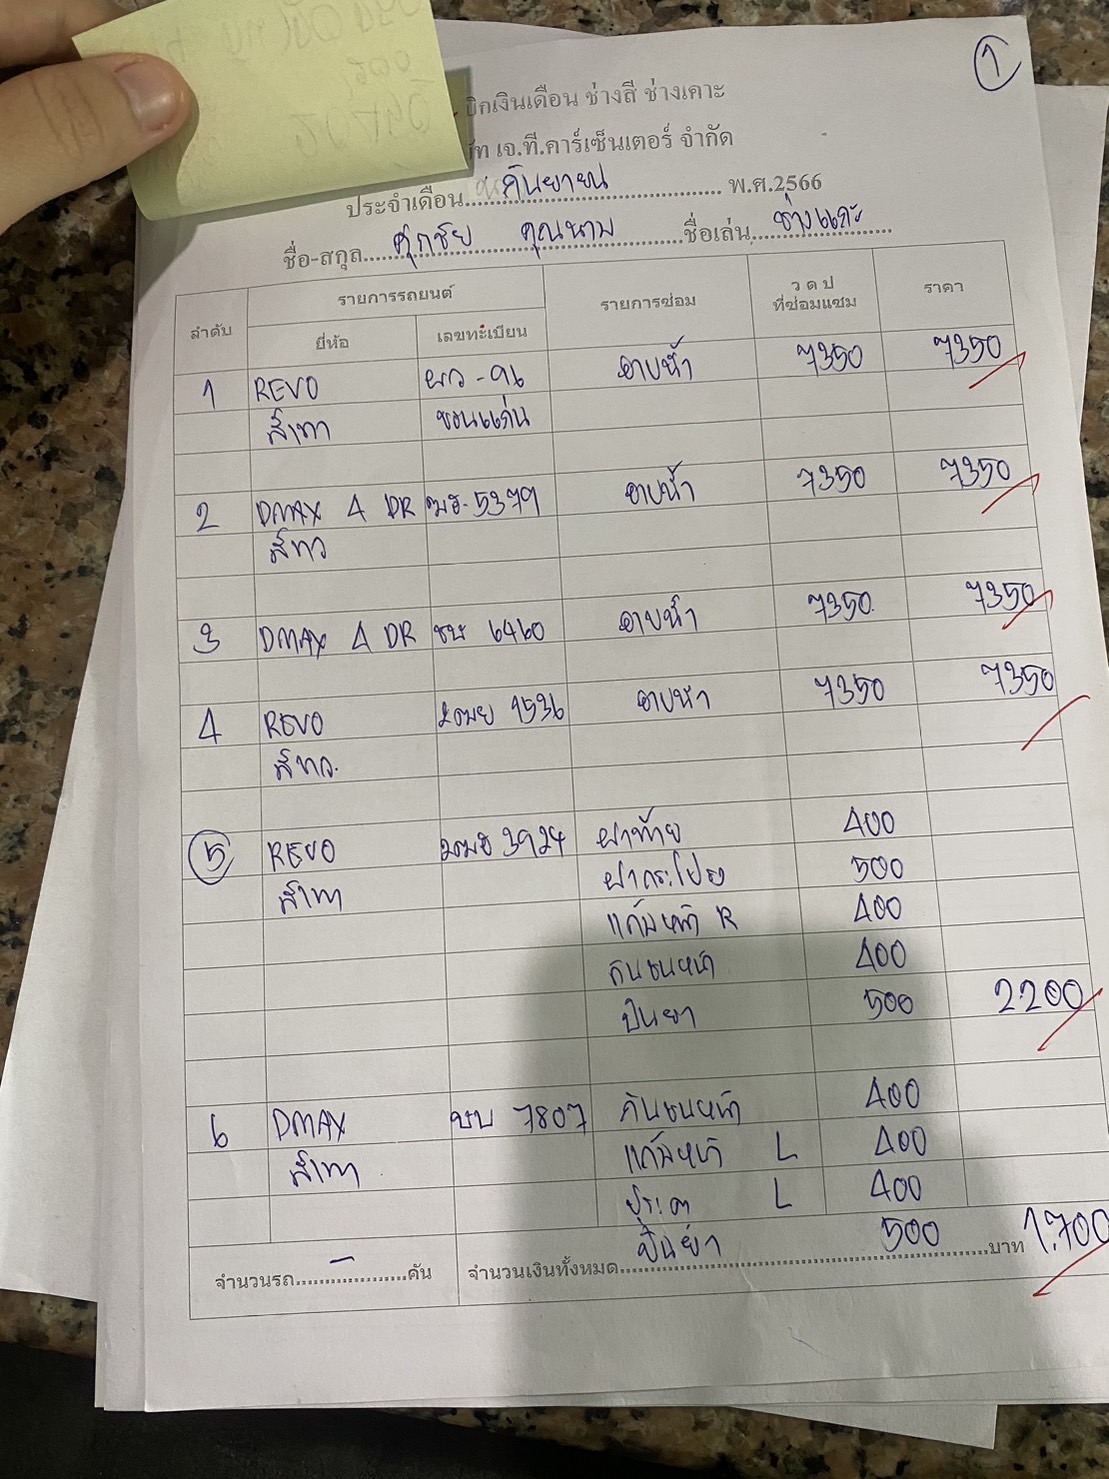 1
บิกเงินเดือน ช่างสี ช่างเคาะ
ษัท เจ.ที.คาร์เซ็นเตอร์ จำกัด
ประจำเดือน กันยายน พ.ศ.2566
ชื่อ-สกุล ศุภชัย คุณนาม ชื่อเล่น ช่างแดะ
ลำดับ รายการรถยนต์ รายการซ่อม ว ด ป ที่ซ่อมแซม ราคา
ยี่ห้อ เลขทะเบียน
1 REVO ผว - 96 อาบน้ำ 7350 7350
สีเทา ขอนแก่น
2 DMAX 4 DR 5379 อาบน้ำ 7350 7350
สีขาว
3 DMAX 4 DR ขษ 6460 อาบน้ำ 7350 7350
4 REVO 1536 อาบน้ำ 7350 7350
สีขาว
5 REVO 3924 ฝาท้าย 400
สีเทา ฝากระโปรง 500
แก้มหน้า R 400
กันชนหน้า 400
ปั่นยา 500 2200
6 DMAX ขบ 7807 กันชนหน้า 400
สีเทา แก้มหน้า L 400
ประตู L 400
ปั่นยา 500 1,700
จำนวนรถ - คัน จำนวนเงินทั้งหมด บาท